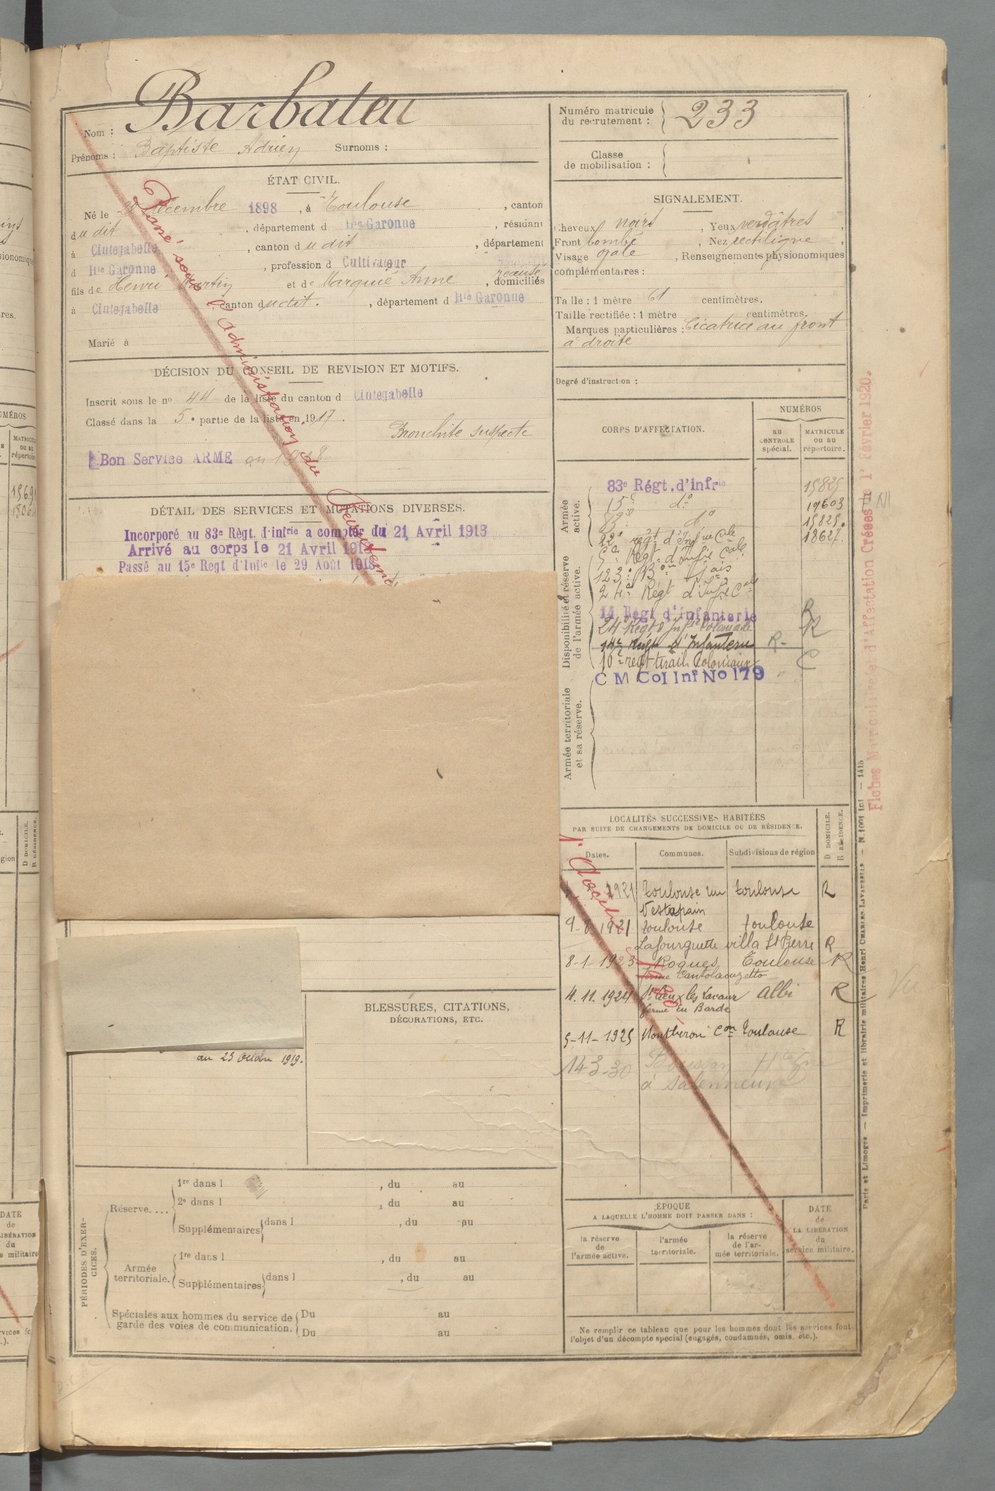 Barbaten
Nom :
Prénoms : Baptiste Adrien Surnoms :
Numéro matricule
du recrutement : 233
Classe
de mobilisation :
ÉTAT CIVIL.
Né le décembre 1898, à Toulouse, canton
du dit, département d Hte Garonne, résidant
à Cintegabelle, canton du dit, département
d Hte Garonne, profession d Cultivateur
fils de Henri Martin et de Marquié Anne, domiciliés
à Cintegabelle canton du dit, département d Hte Garonne
Marié à
SIGNALEMENT.
Cheveux noirs, Yeux verdâtres
Front bombé, Nez rectiligne
Visage ovale, Renseignements physionomiques
complémentaires :
Taille : 1 mètre 61 centimètres.
Taille rectifiée : 1 mètre centimètres.
Marques particulières : Cicatrice au front
à droite
Degré d'instruction :
DÉCISION DU CONSEIL DE REVISION ET MOTIFS.
Inscrit sous le no 44 de la liste du canton d Cintegabelle
Classé dans la 5e partie de la liste en 1917
Bronchite suspecte
Bon Service ARMÉ en 1918
Passé sous l'administration du Recrutement
DÉTAIL DES SERVICES ET MUTATIONS DIVERSES.
Incorporé au 83e Régt. d'infrie a compter du 21 Avril 1918
Arrivé au corps le 21 Avril 1918
Passé au 15e Regt d'Infie le 29 Août 1918
CORPS D'AFFECTATION.
NUMÉROS
AU
CONTRÔLE
spécial.
MATRICULE
OU AU
répertoire.
Armée
active.
83e Régt. d'infrie 15825
15e do 19603
83e do 15825
22e régt d'Infrie Cale 18627
Disponibilité et réserve
de l'armée active.
5e Régt d'Infie Cale
24e Régt d'Infie Cale
14 Régt d'Infanterie R
24 Régt d'Infie Coloniale R
14e Régt d'Infanterie R
10e régt tirail. Coloniaux C
C M Col Inf No 179
Armée territoriale
et sa réserve.
Fiches Matricules et d'Affectation Créées le 1er Février 1920.
LOCALITÉS SUCCESSIVES HABITÉES
PAR SUITE DE CHANGEMENTS DE DOMICILE OU DE RÉSIDENCE.
Dates. Communes. Subdivisions de région D DOMICILE. R RÉSIDENCE.
1921 Toulouse Toulouse R
1921 Toulouse Toulouse
Lafourguette villa St Pierre R
8-1-1923 Roques Toulouse R
11.11.1924 St Lieux les Lavaur Albi R
ferme En Barde
5-11-1925 Montbiron Con Toulouse R
14-3-30
au 23 octobre 1919.
BLESSURES, CITATIONS,
DÉCORATIONS, ETC.
PÉRIODES D'EXER-
CICES.
Réserve....
1re dans l , du au
2e dans l , du au
Supplémentaires dans l , du au
Armée
territoriale.
1re dans l , du au
Supplémentaires dans l , du au
Spéciales aux hommes du service de
garde des voies de communication.
Du au
Du au
ÉPOQUE
A LAQUELLE L'HOMME DOIT PASSER DANS :
la réserve
de
l'armée active.
l'armée
territoriale.
la réserve
de l'ar-
mée territoriale.
DATE
de
LA LIBÉRATION
du
service militaire.
Ne remplir ce tableau que pour les hommes dont les services font
l'objet d'un décompte spécial (engagés, condamnés, omis, etc.).
Paris et Limoges. — Imprimerie et librairie militaires Henri CHARLES-LAVAUZELLE